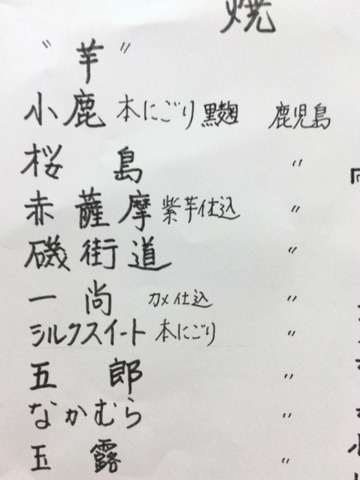 焼
"芋"
小鹿 本にごり 黒麹 鹿児島
桜島 〃
赤薩摩 紫芋仕込 〃
磯街道 〃
一尚 カメ仕込 〃
シルクスイート 本にごり 〃
五郎 〃
なかむら 〃
玉露 〃